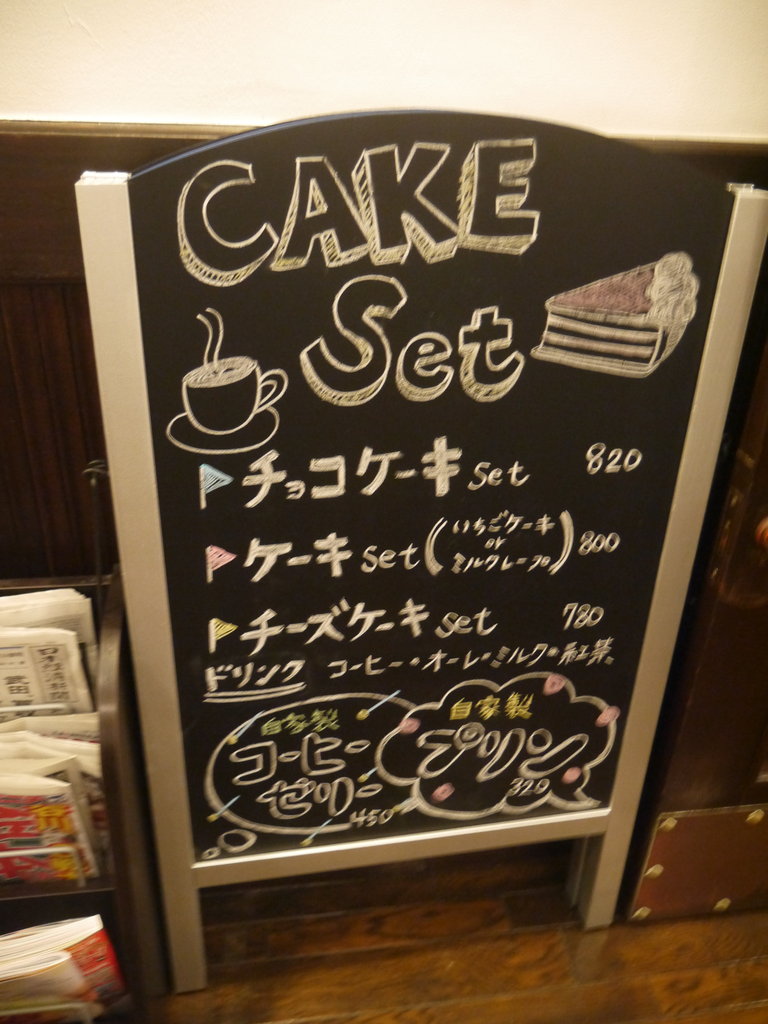 CAKE
Set
チョコケーキ set 820
ケーキ set (いちごケーキ or ミルクレープ) 800
チーズケーキ set 780
ドリンク コーヒー・オーレ・ミルク・紅茶
自家製
コーヒー
ゼリー
450
自家製
プリン
320